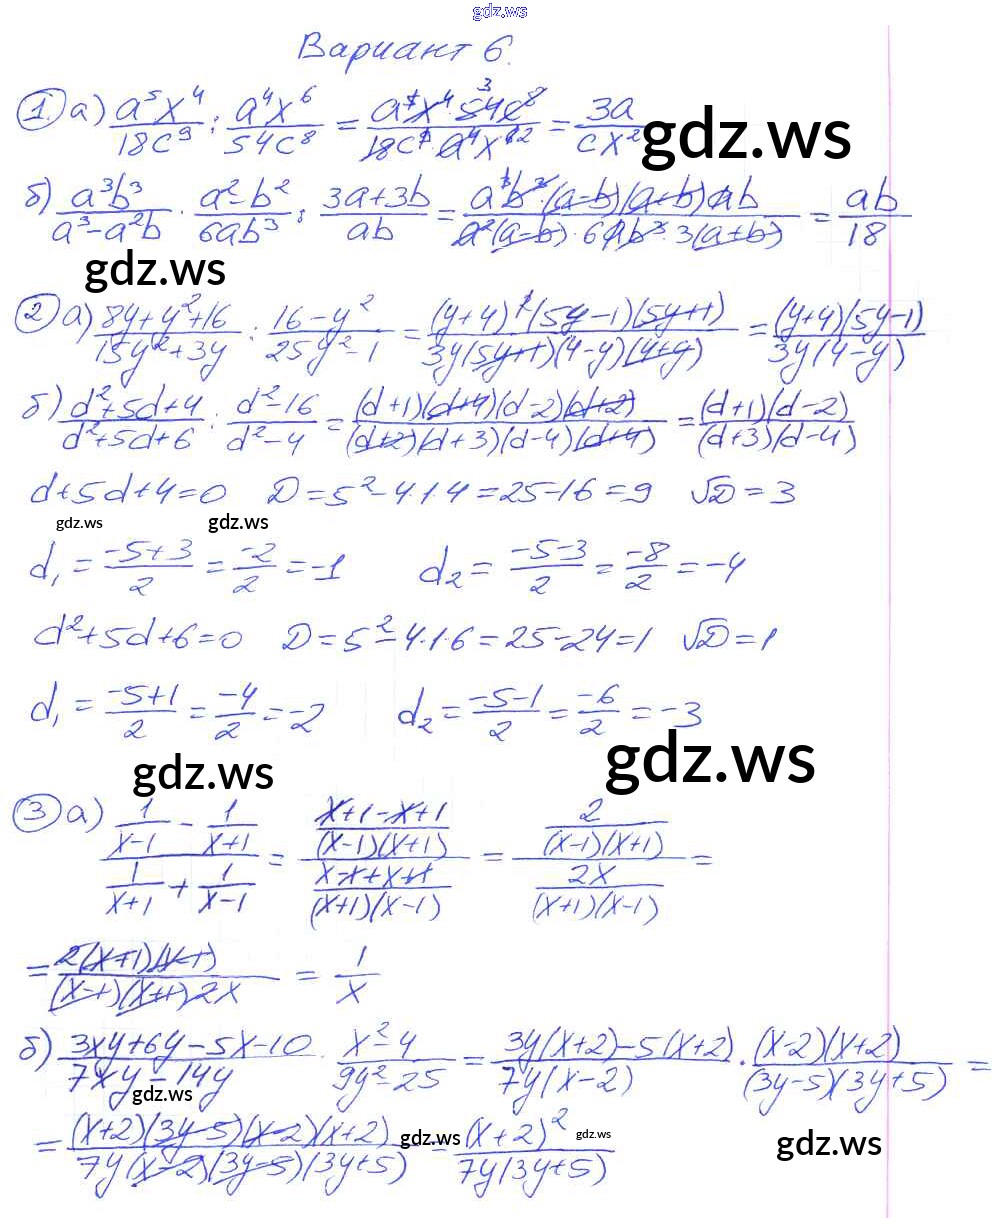 gdz.ws
Вариант 6.
1. а) a⁵x⁴/18c⁹ : a⁴x⁶/54c⁸ = a⁵x⁴·54c⁸/18c⁹·a⁴x⁶ = 3a/cx²
gdz.ws
б) a³b³/a³-a²b · a²-b²/6ab³ : 3a+3b/ab = a³b³·(a-b)(a+b)·ab/a²(a-b)·6ab³·3(a+b) = ab/18
gdz.ws
2 а) 8y+y²+16/15y²+3y : 16-y²/25y²-1 = (y+4)²(5y-1)(5y+1)/3y(5y+1)(4-y)(4+y) = (y+4)(5y-1)/3y(4-y)
б) d²+5d+4/d²+5d+6 : d²-16/d²-4 = (d+1)(d+4)(d-2)(d+2)/(d+2)(d+3)(d-4)(d+4) = (d+1)(d-2)/(d+3)(d-4)
d+5d+4=0 D=5²-4·1·4=25-16=9 √D=3
gdz.ws gdz.ws
d₁ = -5+3/2 = -2/2 = -1 d₂ = -5-3/2 = -8/2 = -4
d²+5d+6=0 D=5²-4·1·6=25-24=1 √D=1
d₁ = -5+1/2 = -4/2 = -2 d₂ = -5-1/2 = -6/2 = -3
gdz.ws gdz.ws
3 а) 1/x-1 - 1/x+1 / 1/x+1 + 1/x-1 = x+1-x+1/(x-1)(x+1) / x-1+x+1/(x+1)(x-1) = 2/(x-1)(x+1) / 2x/(x+1)(x-1) =
= 2(x+1)(x-1)/(x-1)(x+1)2x = 1/x
б) 3xy+6y-5x-10/7xy-14y · x²-4/9y²-25 = 3y(x+2)-5(x+2)/7y(x-2) · (x-2)(x+2)/(3y-5)(3y+5) =
gdz.ws
= (x+2)(3y-5)(x-2)(x+2)/7y(x-2)(3y-5)(3y+5) = (x+2)²/7y(3y+5)
gdz.ws gdz.ws gdz.ws